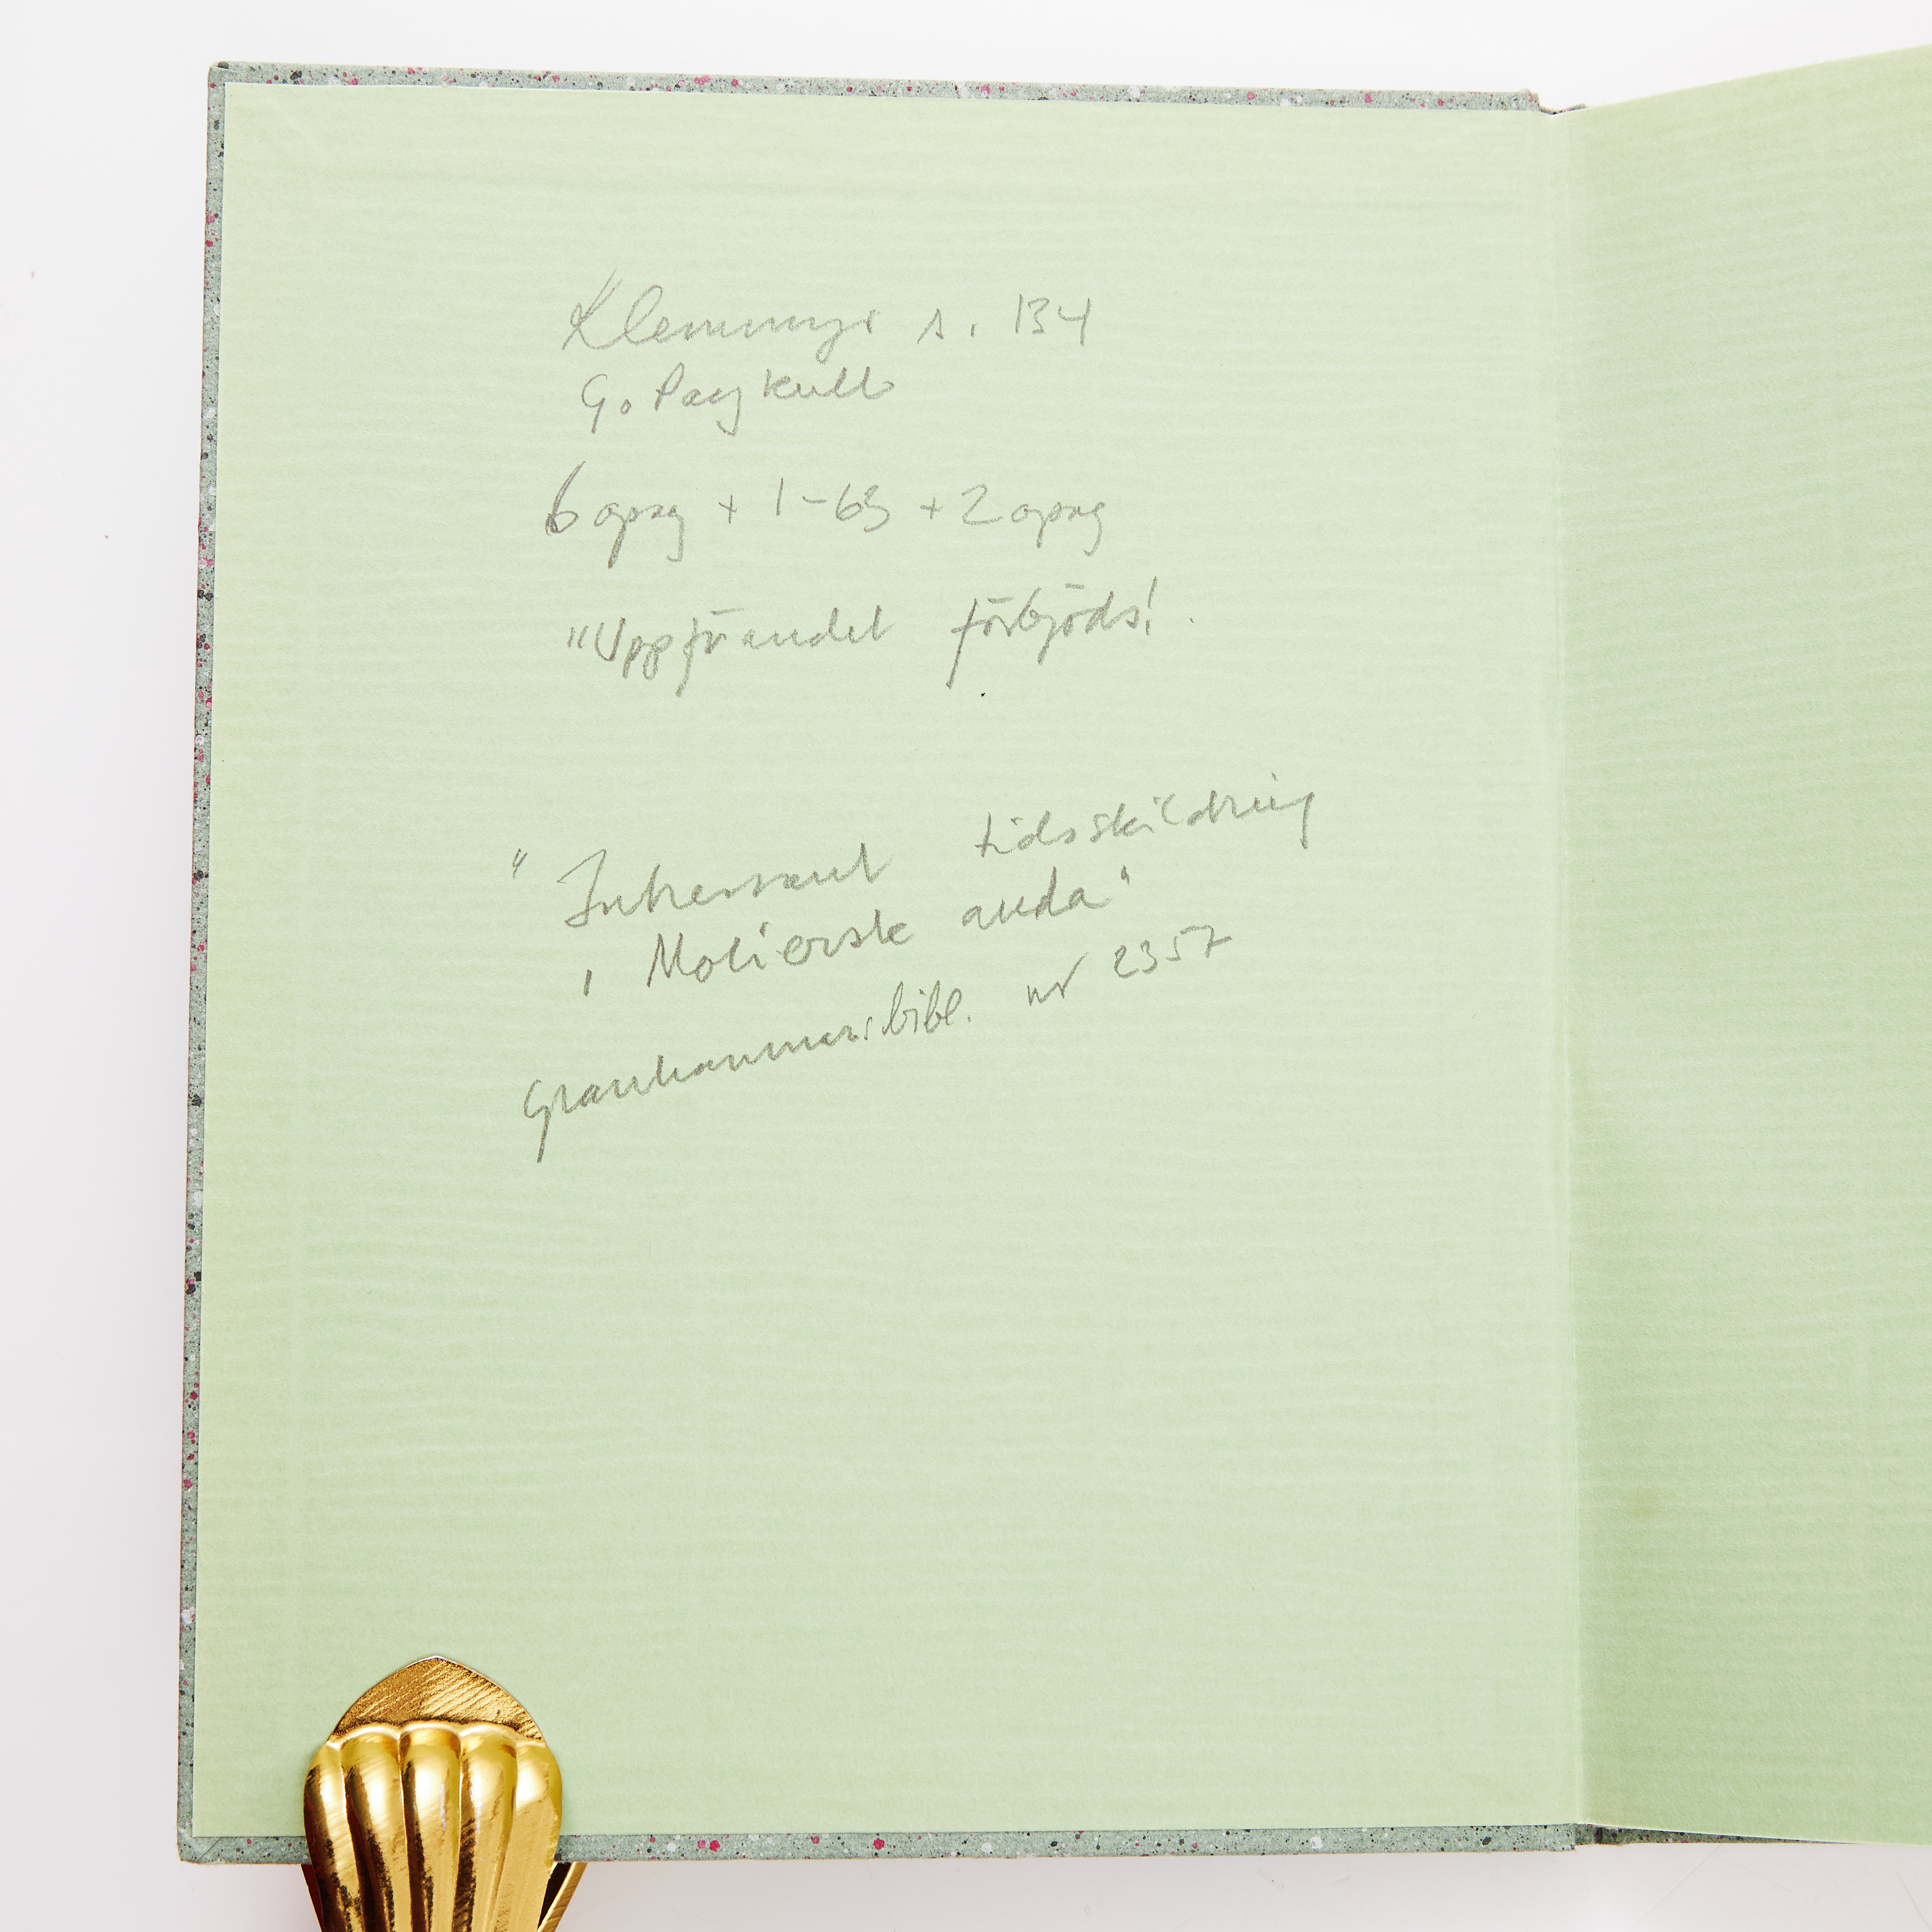 Klemmings s. 134
G. Paykull
6 opag + 1-63 + 2 opag
"Uppförandet förbjöds!
" Intressant tidsskildring
i Moliersk anda"
Granhammarsbibl. nr 2357